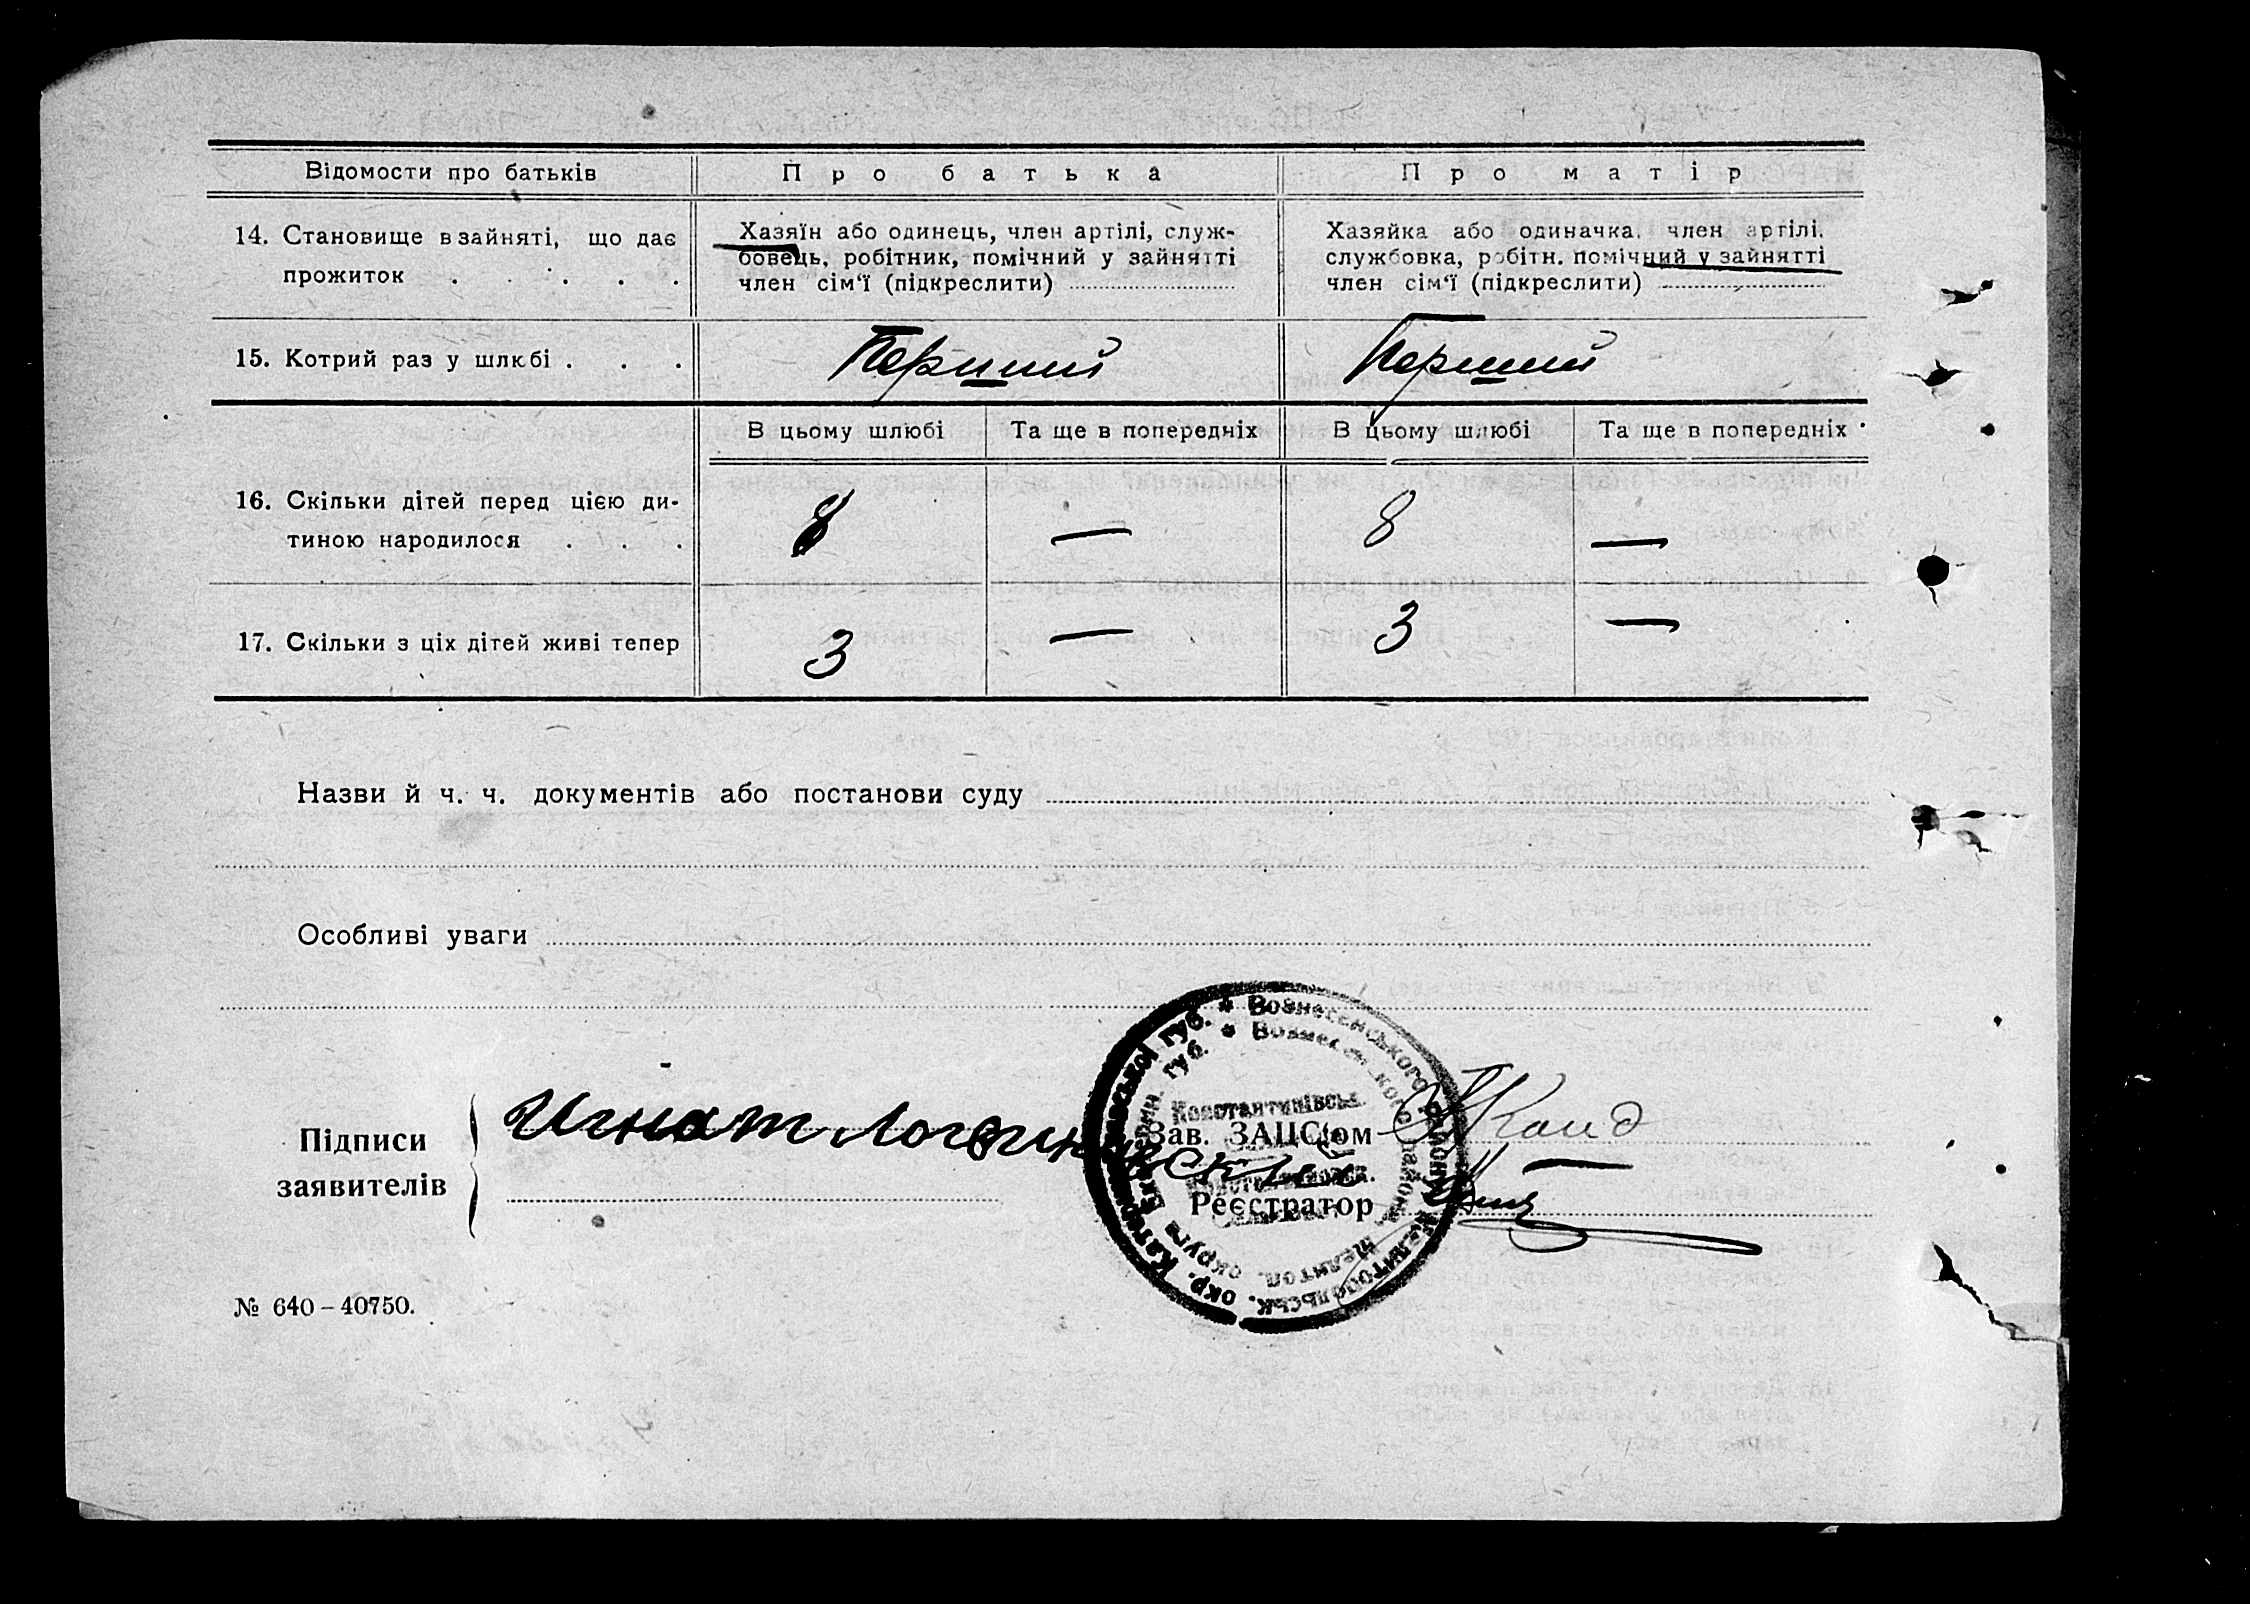 Відомости про батьків
Про батька
Про матір
14. Становище в зайняті, що дає
прожиток . . . . .
Хазяїн або одинець, член артілі, служ-
бовець, робітник, помічний у зайнятті
член сім'ї (підкреслити)
Хазяйка або одиначка, член артілі,
службовка, робітн. помічний у зайнятті
член сім'ї (підкреслити)
15. Котрий раз у шлюбі . . .
Перший
Перший
В цьому шлюбі
Та ще в попередніх
В цьому шлюбі
Та ще в попередніх
16. Скільки дітей перед цією ди-
тиною народилося . . .
8
—
8
—
17. Скільки з ціх дітей живі тепер
3
—
3
—
Назви й ч. ч. документів або постанови суду
Особливі уваги
Підписи
заявителів
Игнат Логвиновский
Зав. ЗАЦС'ом
Реєстратор
* Вознесенського району Мелитопольськ. окр. Катеринославської губ.
* Вознесенского района Мелитоп. округа Екатерин. губ.
Константинівськ.
№ 640-40750.